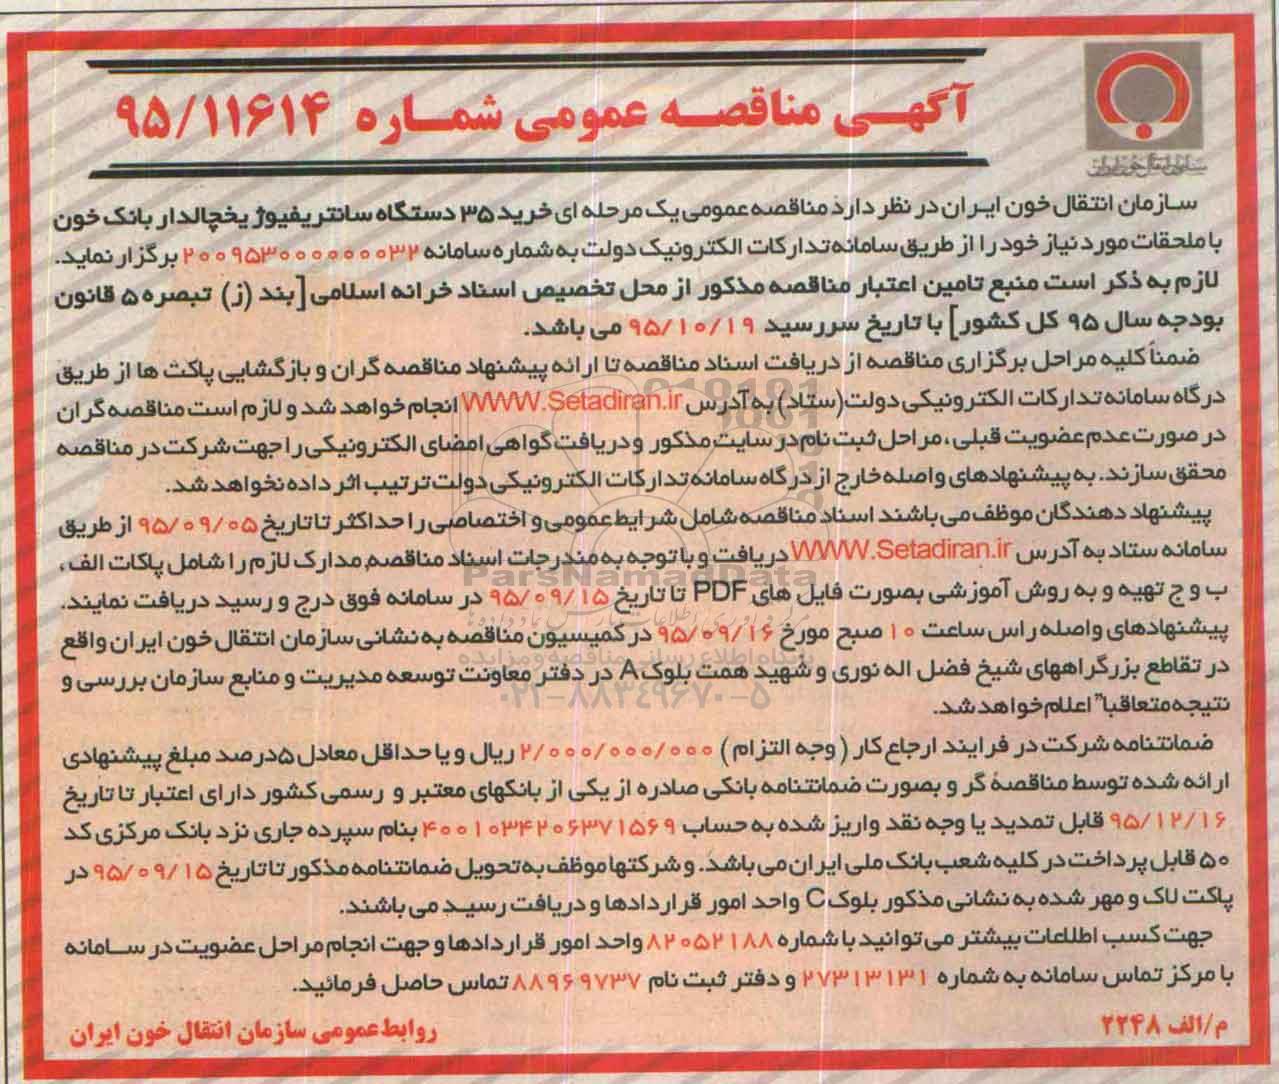 آگهی مناقصه عمومی شماره ۹۵/۱۱۶۱۴
سازمان انتقال خون ایران
سازمان انتقال خون ایران در نظر دارد مناقصه عمومی یک مرحله ای خرید ۳۵ دستگاه سانتریفیوژ یخچالدار بانک خون
با ملحقات مورد نیاز خود را از طریق سامانه تدارکات الکترونیک دولت به شماره سامانه ۲۰۰۹۵۳۰۰۰۰۰۰۰۳۲ برگزار نماید.
لازم به ذکر است منبع تامین اعتبار مناقصه مذکور از محل تخصیص اسناد خزانه اسلامی [بند (ز) تبصره ۵ قانون
بودجه سال ۹۵ کل کشور] با تاریخ سررسید ۹۵/۱۰/۱۹ می باشد.
ضمناً کلیه مراحل برگزاری مناقصه از دریافت اسناد مناقصه تا ارائه پیشنهاد مناقصه گران و بازگشایی پاکت ها از طریق
درگاه سامانه تدارکات الکترونیکی دولت(ستاد) به آدرس WWW.Setadiran.ir انجام خواهد شد و لازم است مناقصه گران
در صورت عدم عضویت قبلی ، مراحل ثبت نام در سایت مذکور و دریافت گواهی امضای الکترونیکی را جهت شرکت در مناقصه
محقق سازند. به پیشنهادهای واصله خارج از درگاه سامانه تدارکات الکترونیکی دولت ترتیب اثر داده نخواهد شد.
پیشنهاد دهندگان موظف می باشند اسناد مناقصه شامل شرایط عمومی و اختصاصی را حداکثر تا تاریخ ۹۵/۰۹/۰۵ از طریق
سامانه ستاد به آدرس WWW.Setadiran.ir دریافت و با توجه به مندرجات اسناد مناقصه، مدارک لازم را شامل پاکات الف ،
ب و ج تهیه و به روش آموزشی بصورت فایل های PDF تا تاریخ ۹۵/۰۹/۱۵ در سامانه فوق درج و رسید دریافت نمایند.
پیشنهادهای واصله راس ساعت ۱۰ صبح مورخ ۹۵/۰۹/۱۶ در کمیسیون مناقصه به نشانی سازمان انتقال خون ایران واقع
در تقاطع بزرگراههای شیخ فضل اله نوری و شهید همت بلوک A در دفتر معاونت توسعه مدیریت و منابع سازمان بررسی و
نتیجه متعاقبا" اعلام خواهد شد.
ضمانتنامه شرکت در فرایند ارجاع کار ( وجه التزام ) ۲/۰۰۰/۰۰۰/۰۰۰ ریال و یا حداقل معادل ۵درصد مبلغ پیشنهادی
ارائه شده توسط مناقصه گر و بصورت ضمانتنامه بانکی صادره از یکی از بانکهای معتبر و رسمی کشور دارای اعتبار تا تاریخ
۹۵/۱۲/۱۶ قابل تمدید یا وجه نقد واریز شده به حساب ۴۰۰۱۰۳۴۲۰۶۳۷۱۵۶۹ بنام سپرده جاری نزد بانک مرکزی کد
۵۰ قابل پرداخت در کلیه شعب بانک ملی ایران می باشد. و شرکتها موظف به تحویل ضمانتنامه مذکور تا تاریخ ۹۵/۰۹/۱۵ در
پاکت لاک و مهر شده به نشانی مذکور بلوک C واحد امور قراردادها و دریافت رسید می باشند.
جهت کسب اطلاعات بیشتر می توانید با شماره ۸۲۰۵۲۱۸۸ واحد امور قراردادها و جهت انجام مراحل عضویت در سامانه
با مرکز تماس سامانه به شماره ۲۷۳۱۳۱۳۱ و دفتر ثبت نام ۸۸۹۶۹۷۳۷ تماس حاصل فرمائید.
م/الف ۲۲۴۸
روابط عمومی سازمان انتقال خون ایران
ParsNamadData
پایگاه اطلاع رسانی مناقصه و مزایده
۰۲۱-۸۸۳۴۹۶۷۰-۵